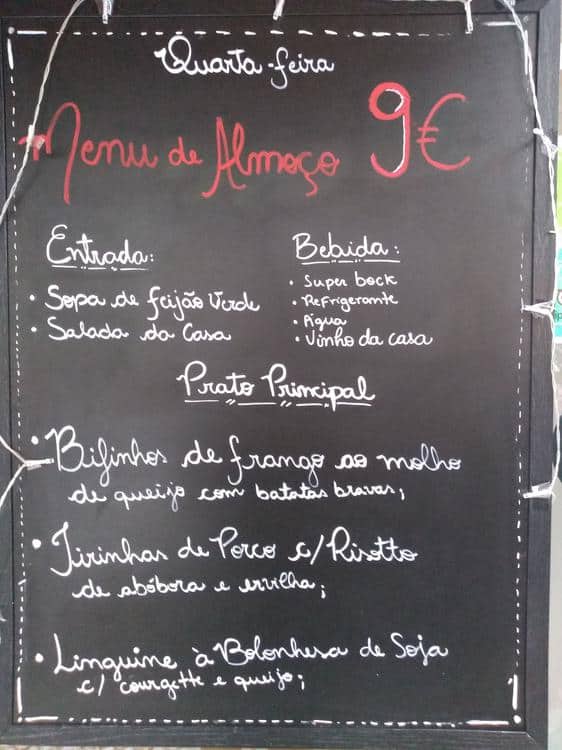 Quarta-feira
Menu de Almoço 9€
Entrada:
• Sopa de feijão Verde
• Salada da Casa
Bebida:
• Super bock
• Refrigerante
• Água
• Vinho da casa
Prato Principal
• Bifinhos de frango ao molho
de queijo com batatas bravas;
• Tirinhas de Porco c/ Risotto
de abóbora e ervilha;
• Linguine à Bolonhesa de Soja
c/ courgette e queijo;